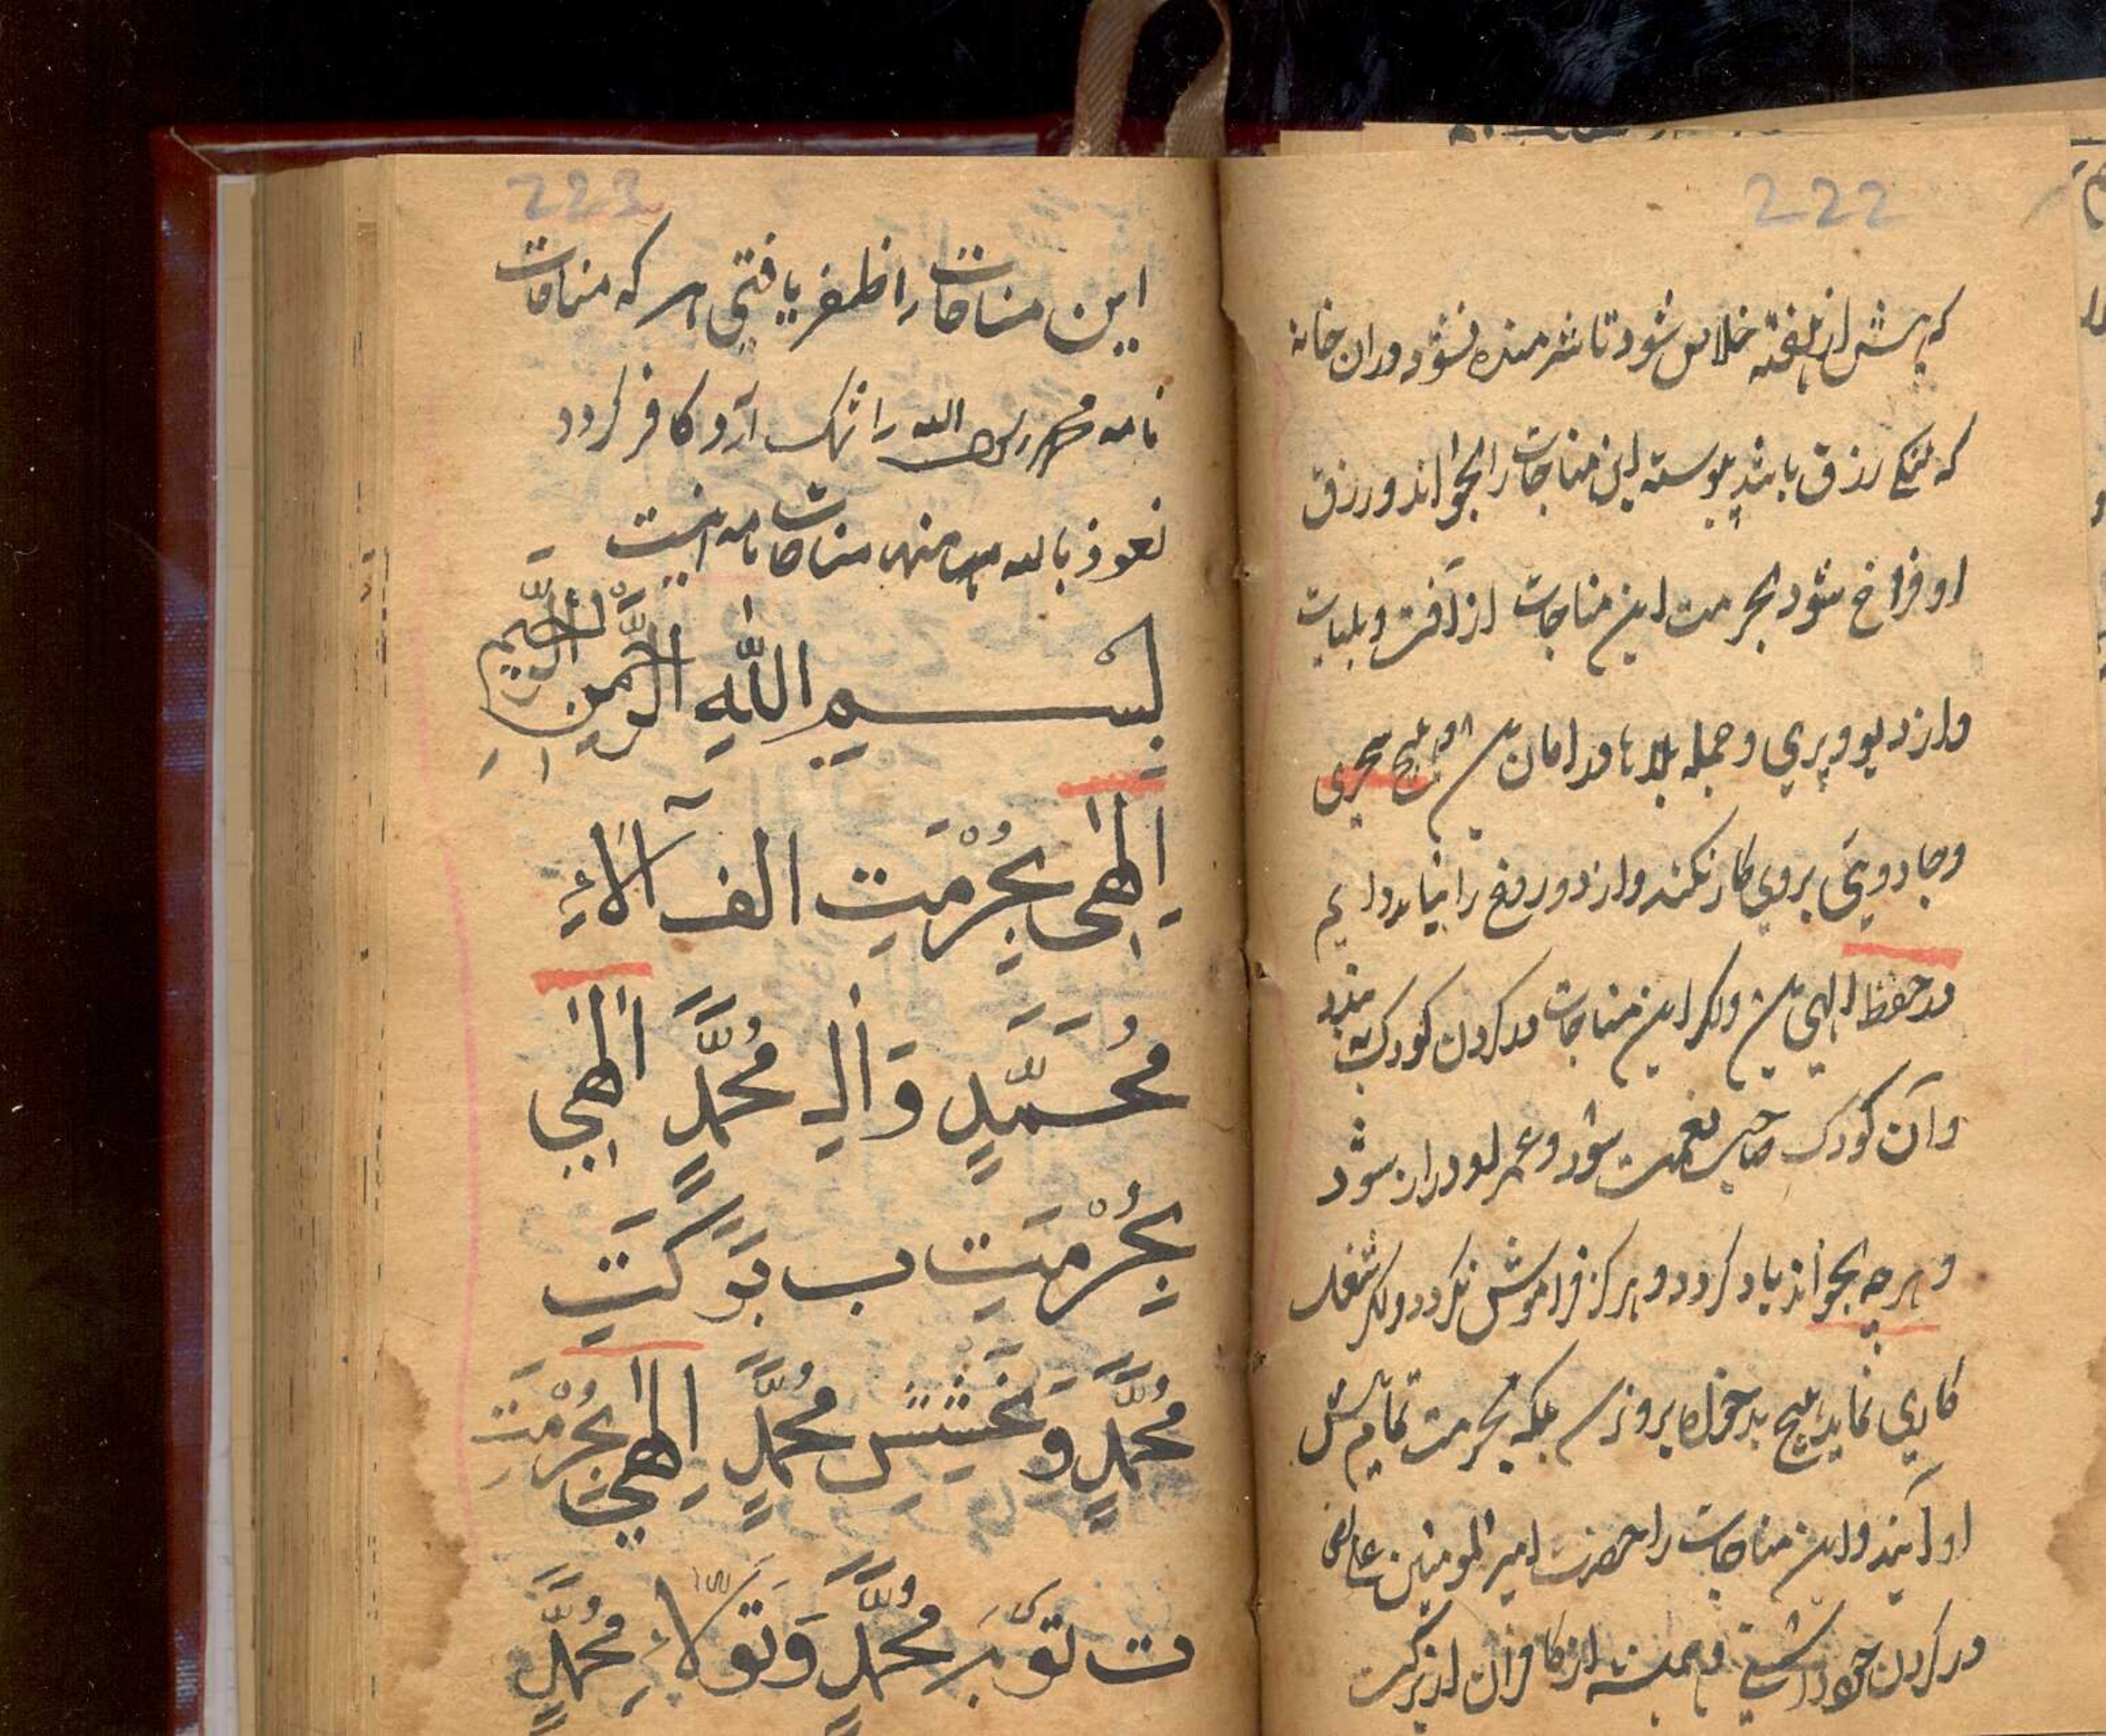 222
که پیش از هفته خلاص شود تا شرمنده نشود و در ان خانه
که تنکی رزق باشد پیوسته این مناجات را بخواند و رزق
او فراخ شود بحرمت این مناجات از آفت و بلیات
و از دیو و پری و جمله بلاها در امان هیچ سحری
و جادویی بروی کار نکند و از دور
در حفظ الهی و اکر این مناجات در کردن کودک بندد
و آن کودک صاحب نعمت شود و عمر او دراز شود
و هرچه بخواند یاد کردد و هرکز فراموش نکردد و اکر شغل
کاری نماید هیچ بدخواه برو بلکه بحرمت تمام پیش
او آیند و این مناجات را حضرت امیر المومنین علی
در کردن خود داشتی و همیشه از کافران از برکت
223
این مناجات را ظفر یافتی هر که مناجات
نامه محمد رسول الله را شک آرد کافر کردد
نعوذ بالله منها مناجات نامه اینست
بِسْمِ اللّٰهِ الرَّحْمٰنِ الرَّحِیْمِ
اِلٰهِی بِحُرْمَتِ الف آلاءِ
مُحَمَّدٍ وَالِ مُحَمَّدٍ الٰهِی
بِحُرْمَتِ ب بَرَکَتِ
مُحَمَّدٍ وَ بَخْشِشِ مُحَمَّدٍ اِلٰهِی بِحُرْمَتِ
ت تَوبَه مُحَمَّدٍ وَ تَوَلّاءِ مُحَمَّدٍ